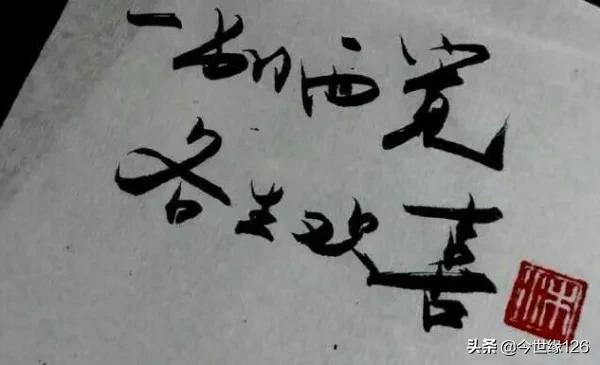 一别两宽
各生欢喜
头条 @今世缘126